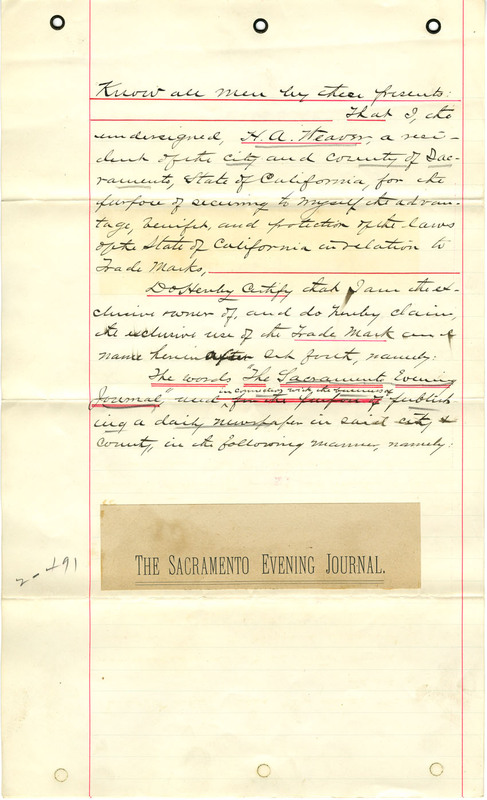 Know all men by these presents:
That I, the
undersigned, H. A. Weaver, a resi-
dent of the city and county of Sac-
ramento, State of California, for the
purpose of securing to myself the advan-
tage, benifit, and protection of the laws
of the State of California in relation to
Trade Marks,
Do Hereby Certify that I am the ex-
clusive owner of, and do hereby claim,
the exclusive use of the Trade Mark and
name herein after set forth, namely:
The words "The Sacramento Evening
in connection with the business of
Journal," used for the purpose of publish
ing a daily newspaper in said city &
county, in the following manner, namely:
THE SACRAMENTO EVENING JOURNAL.